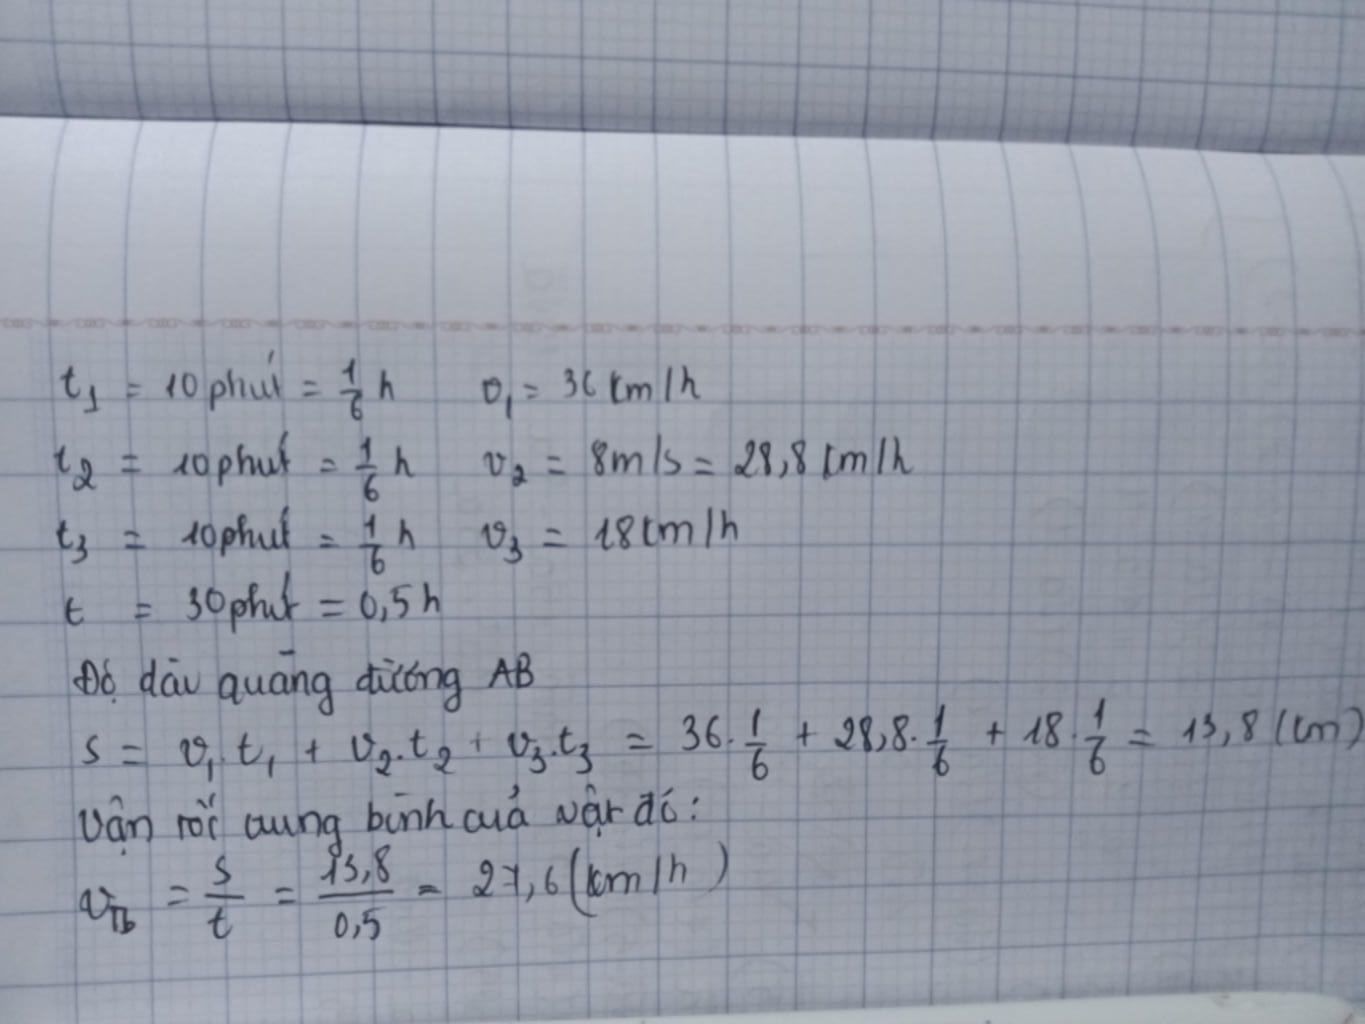 t₁ = 10 phút = 1/6 h v₁ = 36 km/h
t₂ = 10 phút = 1/6 h v₂ = 8m/s = 28,8 km/h
t₃ = 10 phút = 1/6 h v₃ = 18 km/h
t = 30 phút = 0,5 h
Độ dài quãng đường AB
s = v₁.t₁ + v₂.t₂ + v₃.t₃ = 36.1/6 + 28,8.1/6 + 18.1/6 = 13,8 (km)
Vận tốc trung bình của vật đó:
vTb = s/t = 13,8/0,5 = 27,6 (km/h)